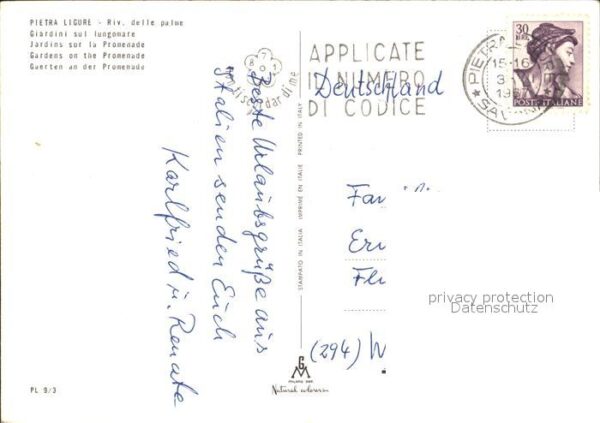 PIETRA LIGURE - Riv. delle palme
Giardini sul lungomare
Jardins sur la Promenade
Gardens on the Promenade
Guerten an der Promenade
APPLICATE
IL NUMERO
DI CODICE
PIETRA
15-16
1967
SAVONA
30
LIRE
POSTE ITALIANE
Deutschland
Beste Urlaubsgrüße aus
Italien senden Euch
Karlfried u. Renate
STAMPATO IN ITALIA IMPRIMÉ EN ITALIE PRINTED IN ITALY
Fa
Er
Fl
(294) W
privacy protection
Datenschutz
PL 9/3